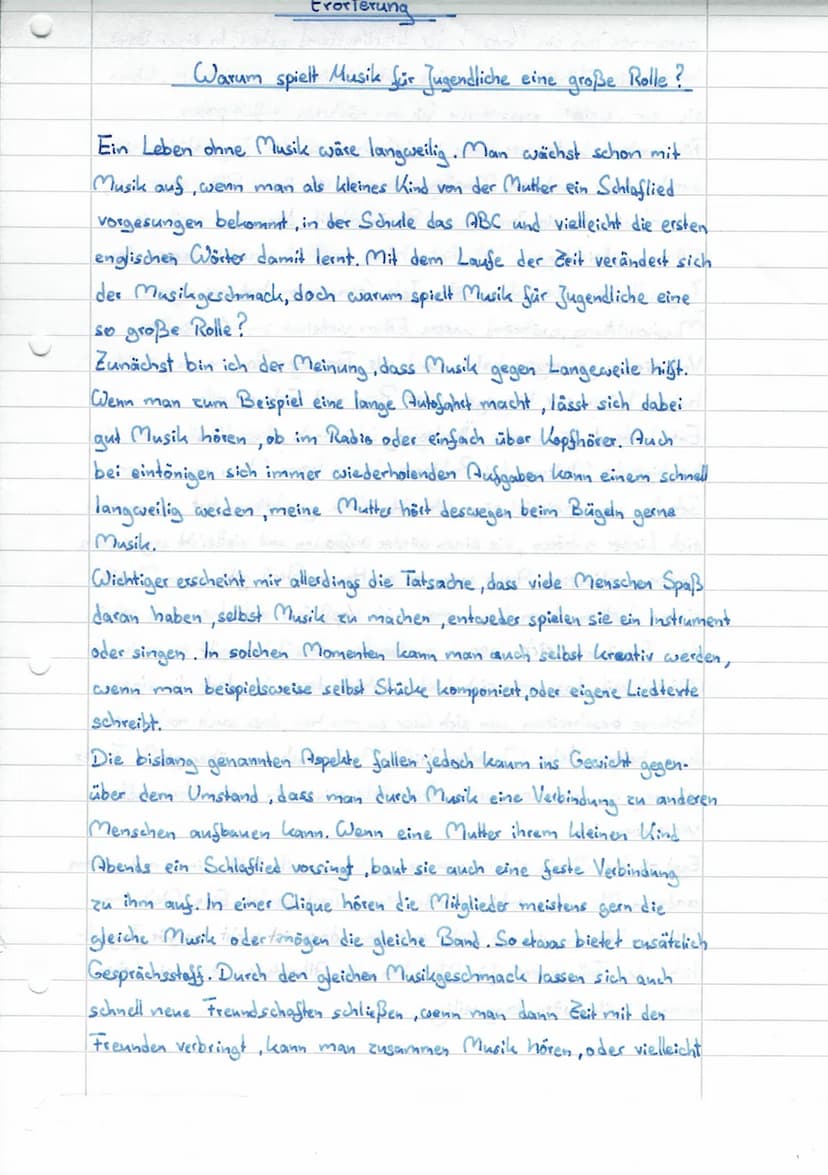 Erörterung
Warum spielt Musik für Jugendliche eine große Rolle?
Ein Leben ohne Musik wäre langweilig. Man wächst schon mit
Musik auf, wenn man als kleines Kind von der Mutter ein Schlaflied
vorgesungen bekommt, in der Schule das ABC und vielleicht die ersten
englischen Wörter damit lernt. Mit dem Laufe der Zeit verändert sich
der Musikgeschmack, doch warum spielt Musik für Jugendliche eine
so große Rolle?
Zunächst bin ich der Meinung, dass Musik gegen Langeweile hilft.
Wenn man zum Beispiel eine lange Autofahrt macht, lässt sich dabei
gut Musik hören, ob im Radio oder einfach über Kopfhörer. Auch
bei eintönigen sich immer wiederholenden Aufgaben kann einem schnell
langweilig werden, meine Mutter hört deswegen beim Bügeln gerne
Musik.
Wichtiger erscheint mir allerdings die Tatsache, dass viele Menschen Spaß
daran haben, selbst Musik zu machen, entweder spielen sie ein Instrument
oder singen. In solchen Momenten kann man auch selbst kreativ werden,
wenn man beispielsweise selbst Stücke komponiert, oder eigene Liedtexte
schreibt.
Die bislang genannten Aspekte fallen jedoch kaum ins Gewicht gegen-
über dem Umstand, dass man durch Musik eine Verbindung zu anderen
Menschen aufbauen kann. Wenn eine Mutter ihrem kleinen Kind
Abends ein Schlaflied vorsingt, baut sie auch eine feste Verbindung
zu ihm auf. In einer Clique hören die Mitglieder meistens gern die
gleiche Musik oder mögen die gleiche Band. So etwas bietet zusätzlich
Gesprächsstoff. Durch den gleichen Musikgeschmack lassen sich auch
schnell neue Freundschaften schließen, wenn man dann Zeit mit den
Freunden verbringt, kann man zusammen Musik hören, oder vielleicht